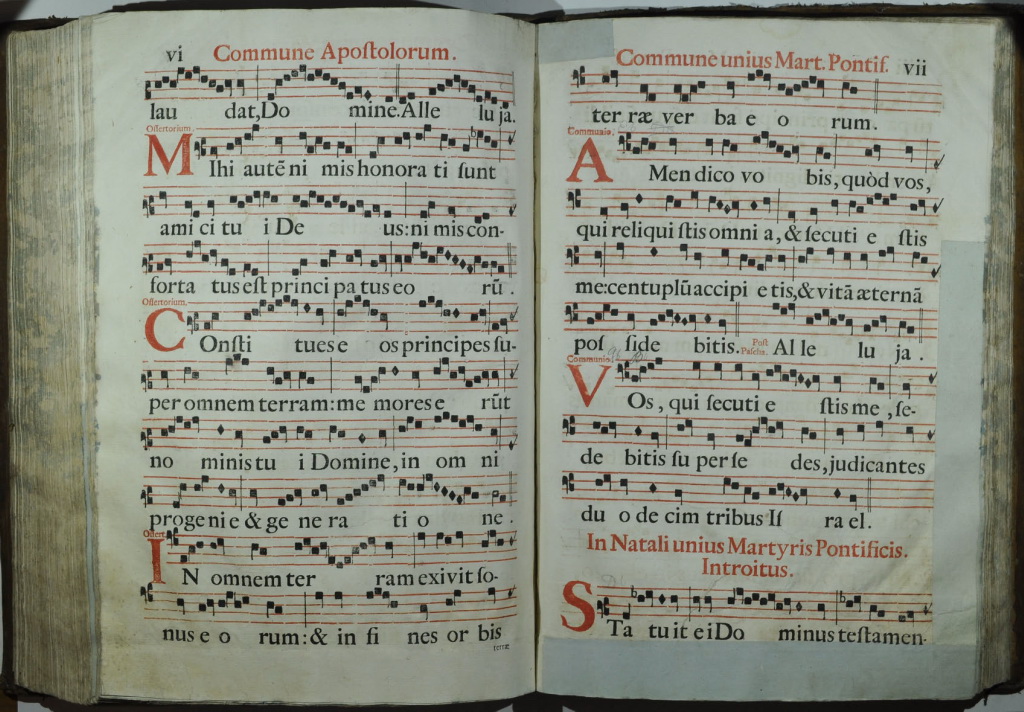 vi Commune Apoſtolorum.
lau dat,Do mine.Alle lu ja.
Offertorium.
MIhi autẽ ni mis honora ti ſunt
ami ci tu i De us:ni mis con-
forta tus eſt princi pa tus eo rũ.
Offertorium.
COnſti tues e os principes ſu-
per omnem terram:me mores e rũt
no minis tu i Domine,in om ni
progenie & ge ne ra ti o ne.
Offert.
IN omnem ter ram exivit ſo-
nus e o rum:& in fi nes or bis
terræ
Commune unius Mart. Pontif. vii
ter ræ ver ba e o rum.
Communio.
AMen dico vo bis,quòd vos,
qui reliqui ſtis omni a,& ſecuti e ſtis
me:centuplũ accipi e tis,& vitã æternã
poſ ſide bitis. Poſt Paſcha. Al le lu ja.
Communio.
VOs, qui ſecuti e ſtis me, ſe-
de bitis ſu per ſe des,judicantes
du o de cim tribus Iſ ra el.
In Natali unius Martyris Pontificis.
Introitus.
STa tuit ei Do minus teſtamen-